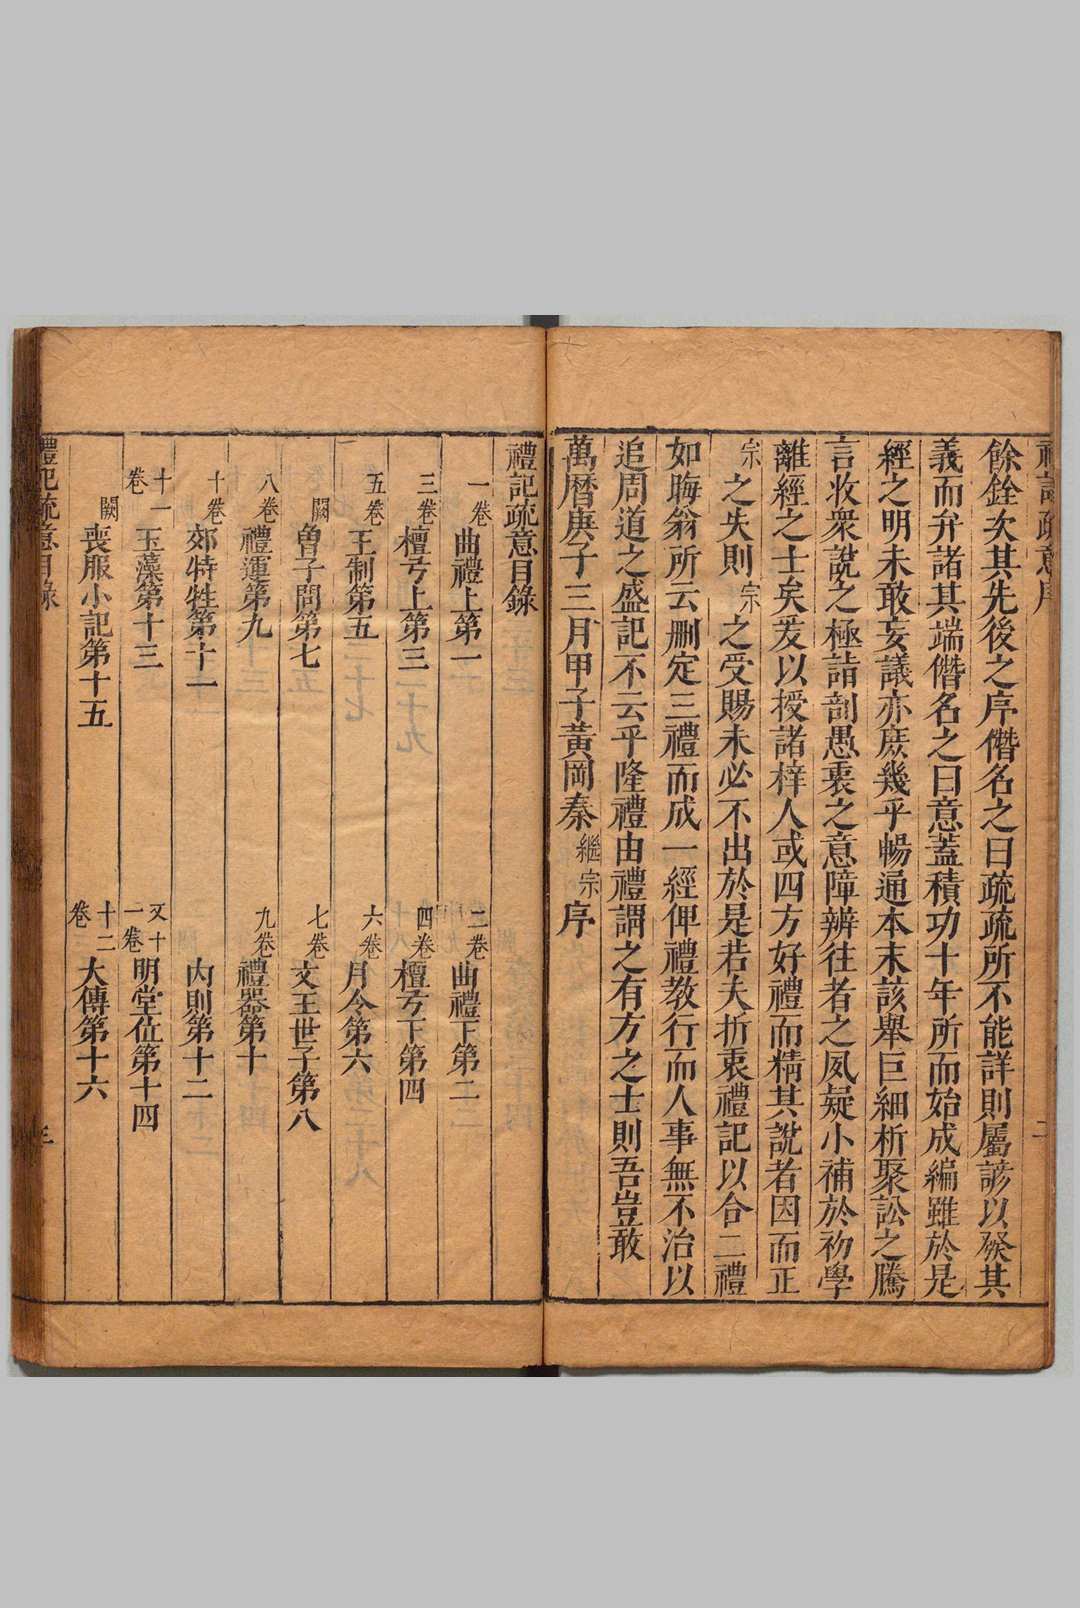 禮記疏意序
二
餘銓次其先後之序僭名之曰疏疏所不能詳則屬諺以發其
義而弁諸其端僭名之曰意蓋積功十年所而始成編雖於是
經之明未敢妄議亦庶幾乎暢通本末該舉巨細析聚訟之騰
言收衆說之極詣剖愚衷之意障辨往者之夙疑小補於初學
離經之士矣爰以授諸梓人或四方好禮而精其說者因而正
宗之失則宗之受賜未必不出於是若夫折衷禮記以合二禮
如晦翁所云刪定三禮而成一經俾禮教行而人事無不治以
追周道之盛記不云乎隆禮由禮謂之有方之士則吾豈敢
萬曆庚子三月甲子黃岡秦繼宗序
禮記疏意目錄
一卷 曲禮上第一 二卷 曲禮下第二
三卷 檀弓上第三 四卷 檀弓下第四
五卷 王制第五 六卷 月令第六
闕 曾子問第七 七卷 文王世子第八
八卷 禮運第九 九卷 禮器第十
十卷 郊特牲第十一 內則第十二
十一卷 玉藻第十三 又十一卷 明堂位第十四
闕 喪服小記第十五 十二卷 大傳第十六
禮記疏意目錄